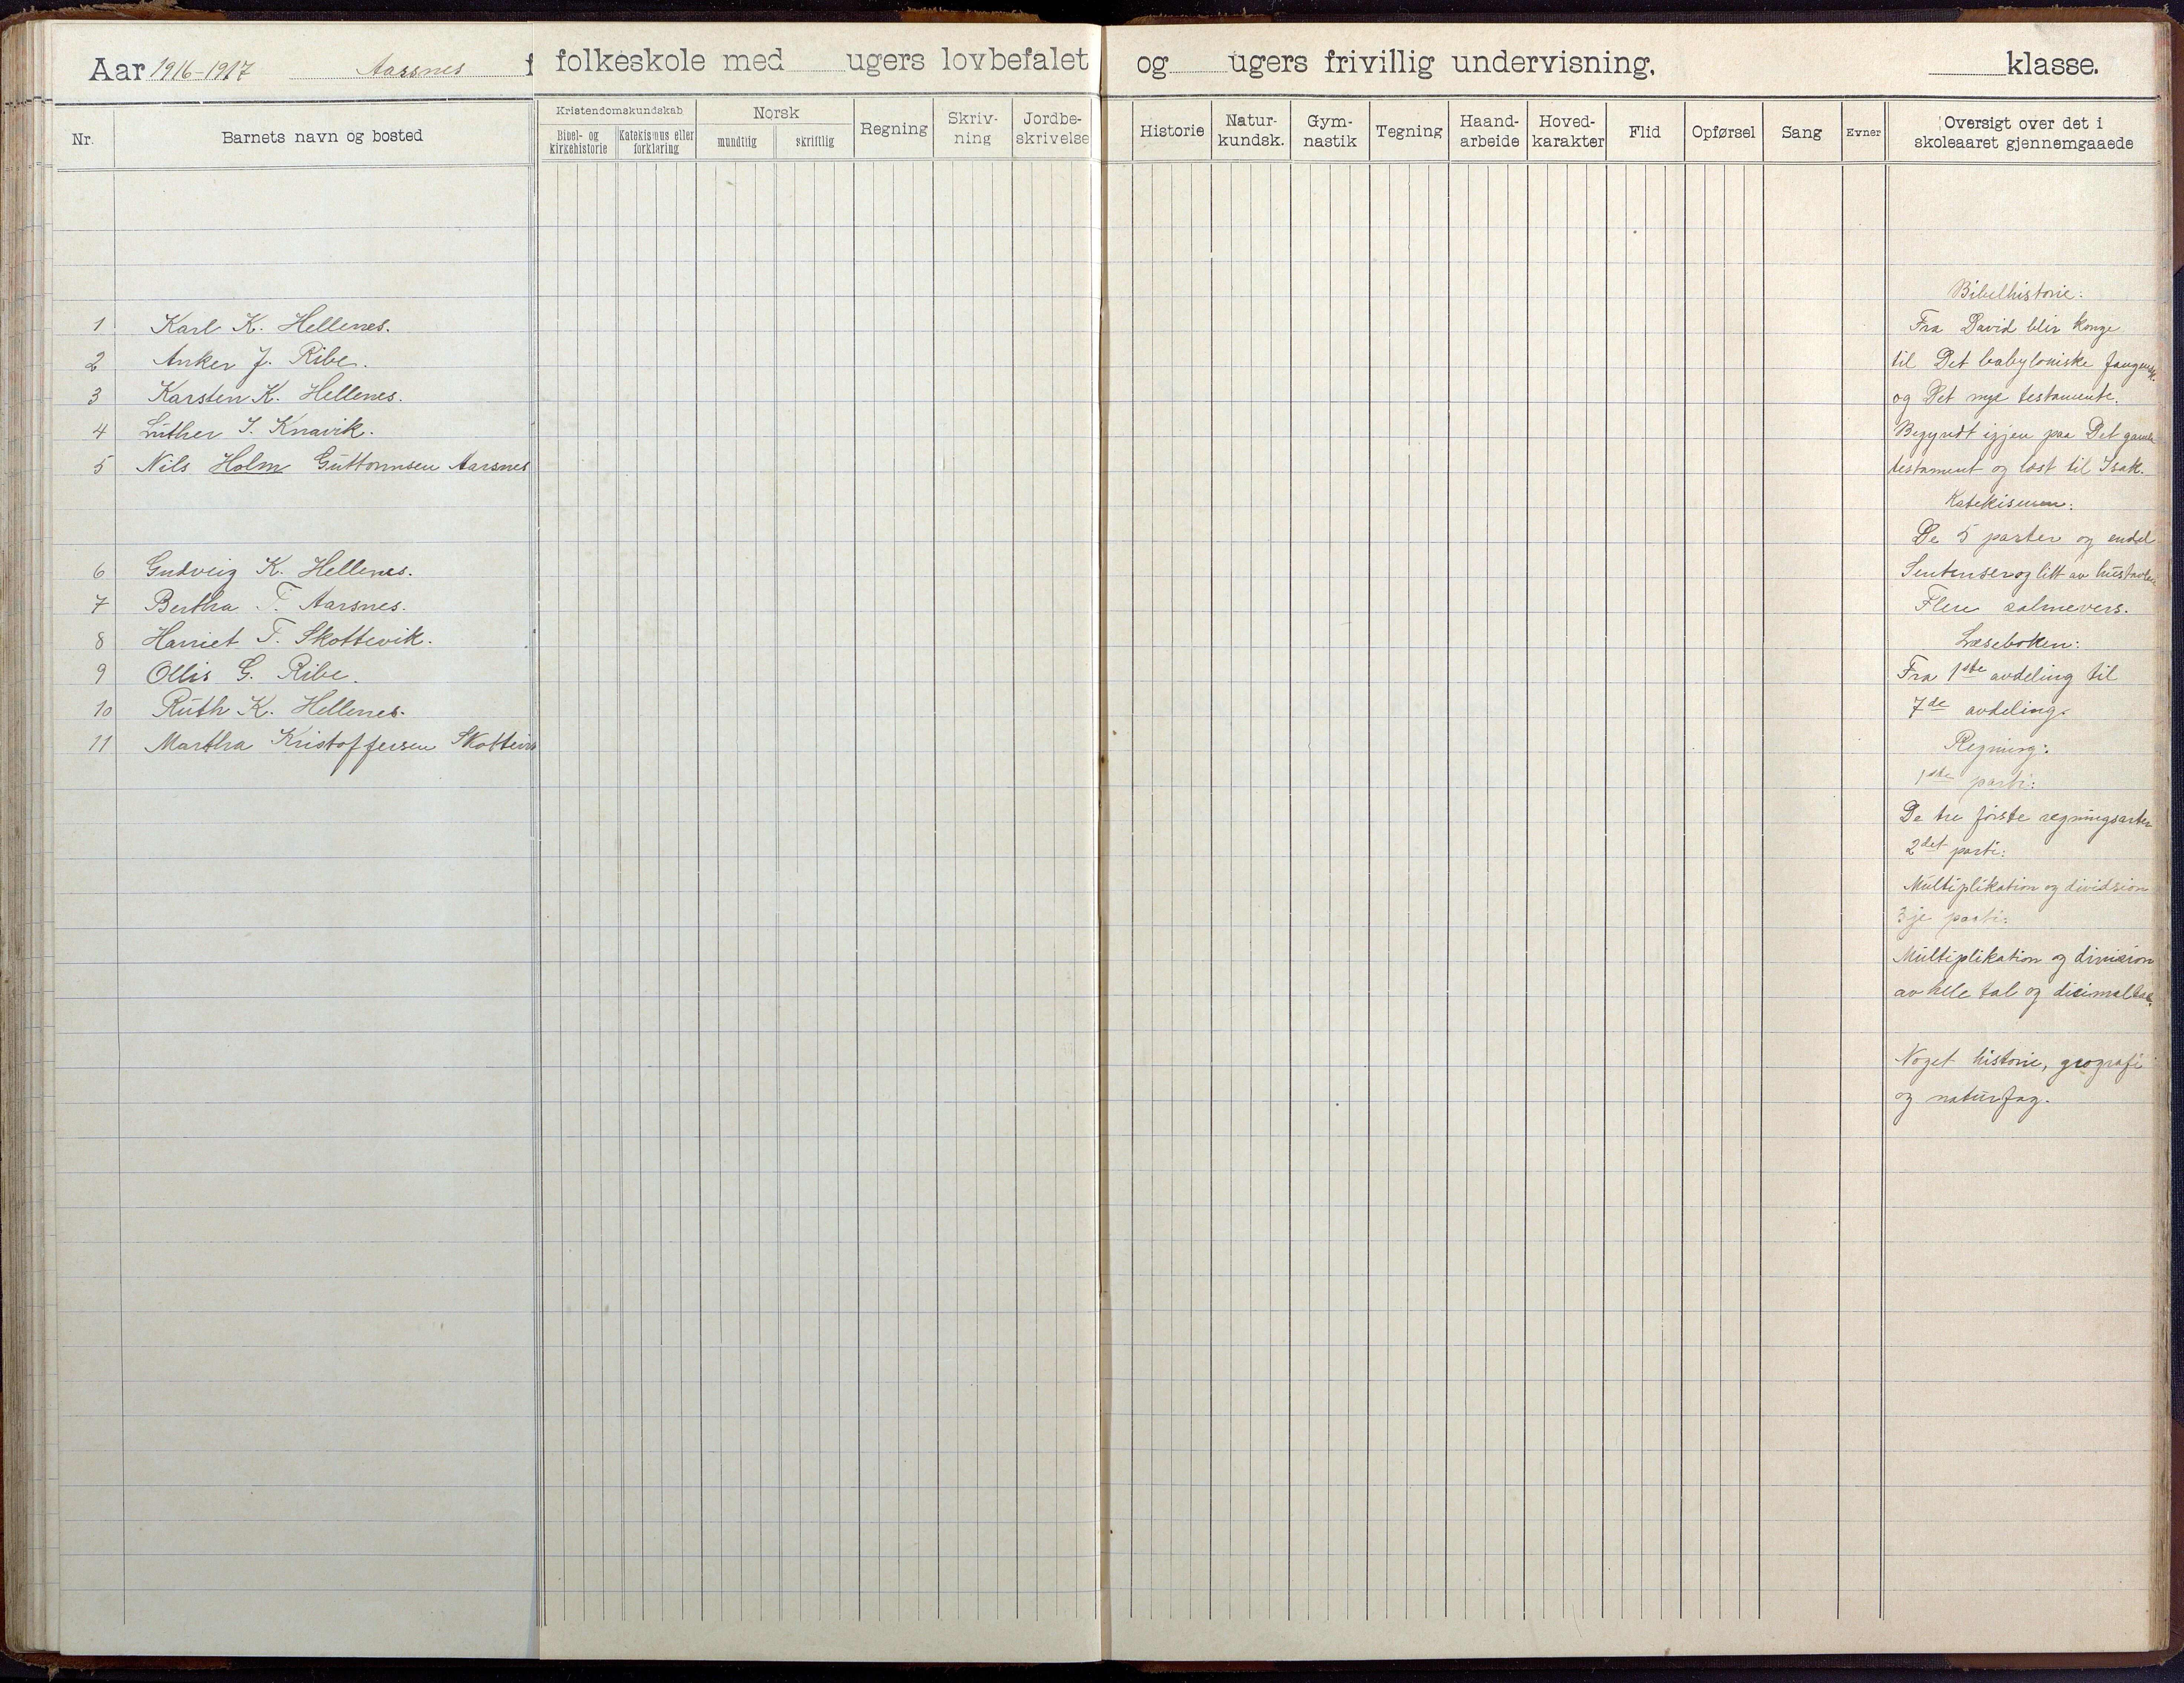 Aar 1916-1917 Aarsnes f folkeskole med ugers lovbefalet og ugers frivillig undervisning. klasse.
Nr. Barnets navn og bosted
Kristendomskundskab
Bibel- og kirkehistorie
Katekismus eller forklaring
Norsk
mundtlig skriftlig
Regning
Skriv-
ning
Jordbe-
skrivelse
Historie
Natur-
kundsk.
Gym-
nastik
Tegning
Haand-
arbeide
Hoved-
karakter
Flid
Opførsel
Sang
Evner
Oversigt over det i
skoleaaret gjennemgaaede
1 Karl K. Hellenes.
2 Anker J. Ribe.
3 Karsten K. Hellenes.
4 Luther I. Knavik.
5 Nils Holm Guttormsen Aarsnes
6 Gudveig K. Hellenes.
7 Bertha T. Aarsnes.
8 Harriet T. Skottevik.
9 Ollis G. Ribe.
10 Ruth K. Hellenes.
11 Martha Kristoffersen Skottevik
Bibelhistorie:
Fra David blir konge
til Det babyloniske fangensk.
og Det nye testamente.
Begyndt igjen paa Det gamle
testament og læst til Isak.
Katekismen:
De 5 parter og endel
Sentenser og litt av hustavlen
Flere salmevers.
Læseboken:
Fra 1ste avdeling til
7de avdeling.
Regning:
1ste parti:
De tre første regningsarter
2det parti:
Multiplikation og dividsion
3je parti:
Multiplikation og division
av hele tal og disimaltal.
Noget historie, geografi
og naturfag.